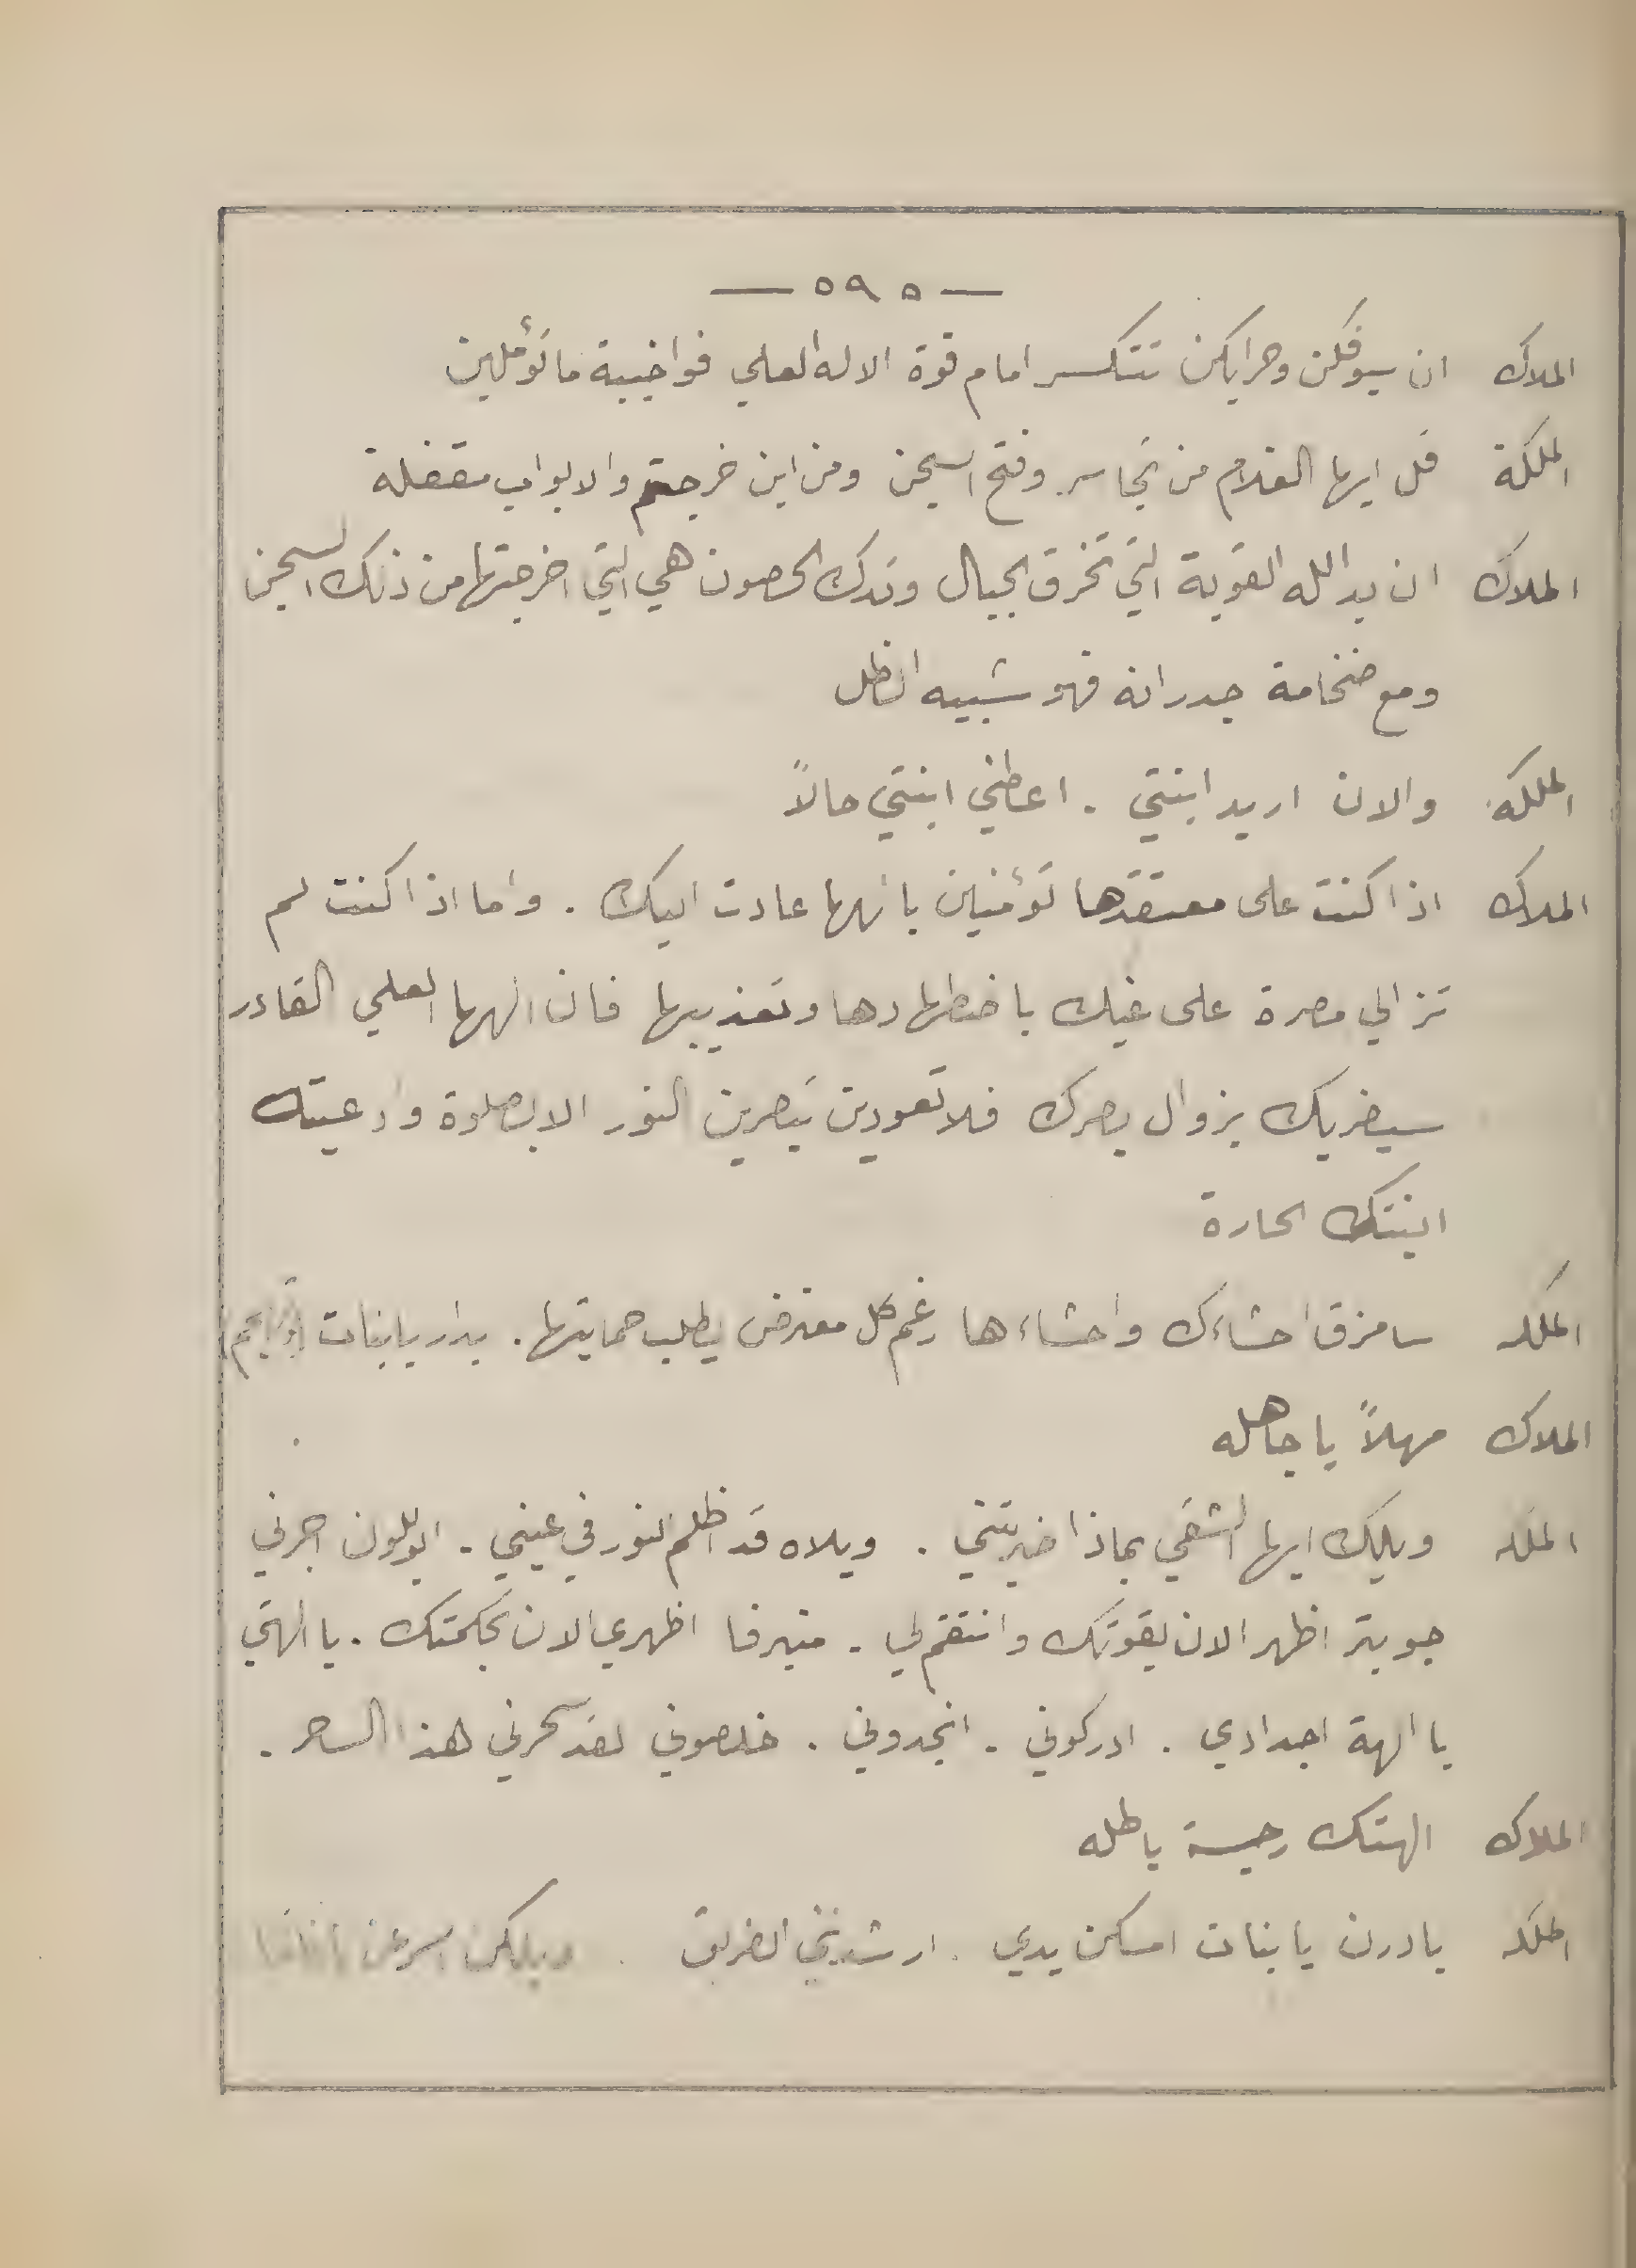 — ٥٩٥ —
الملاك ان سيوفكن وحرابكن تتكسر امام قوة الاله العلي فواخيبة ما تؤملين
الملكة قل ايها الغلام من تجاسر وفتح السجن ومن اين خرجتم والابواب مقفلة
الملاك ان يد الله القوية التي تخرق الجبال وتدك الحصون هي التي اخرجتها من ذلك السجن
ومع ضخامة جدرانه فهو شبيه الظل
الملكة والان اريد ابنتي . اعطني ابنتي حالاً
الملاك اذا كنت على معتقدها تؤمنين بالهها عادت اليك . واما اذا كنت لم
تزالي مصرة على غيك باضطهادها وتعذيبها فان الهها العلي القادر
سيضربك بزوال بصرك فلا تعودين تبصرين النور الا بصلوة وادعية
ابنتك الحارة
الملكه سامزق احشاءك واحشاءها رغم كل معترض يطلب حمايتها . بدار يا بنات
الملاك مهلاً يا جاهله
الملكه ويلك ايها الشقي بماذا ضربتني . ويلاه قد اظلم النور في عيني . ابوللون اجرني
جوبتر اظهر الان بقوتك وانتقم لي . منيرفا اظهري الان بحكمتك . يا الهتي
يا الهة اجدادي . ادركوني . انجدوني . خلصوني لقد سحرني هذا الساحر .
الملاك الهتك رجسة باطله
الملكه بادرن يا بنات امسكن يدي . ارشدنني الطريق . ويلكن اسرعن